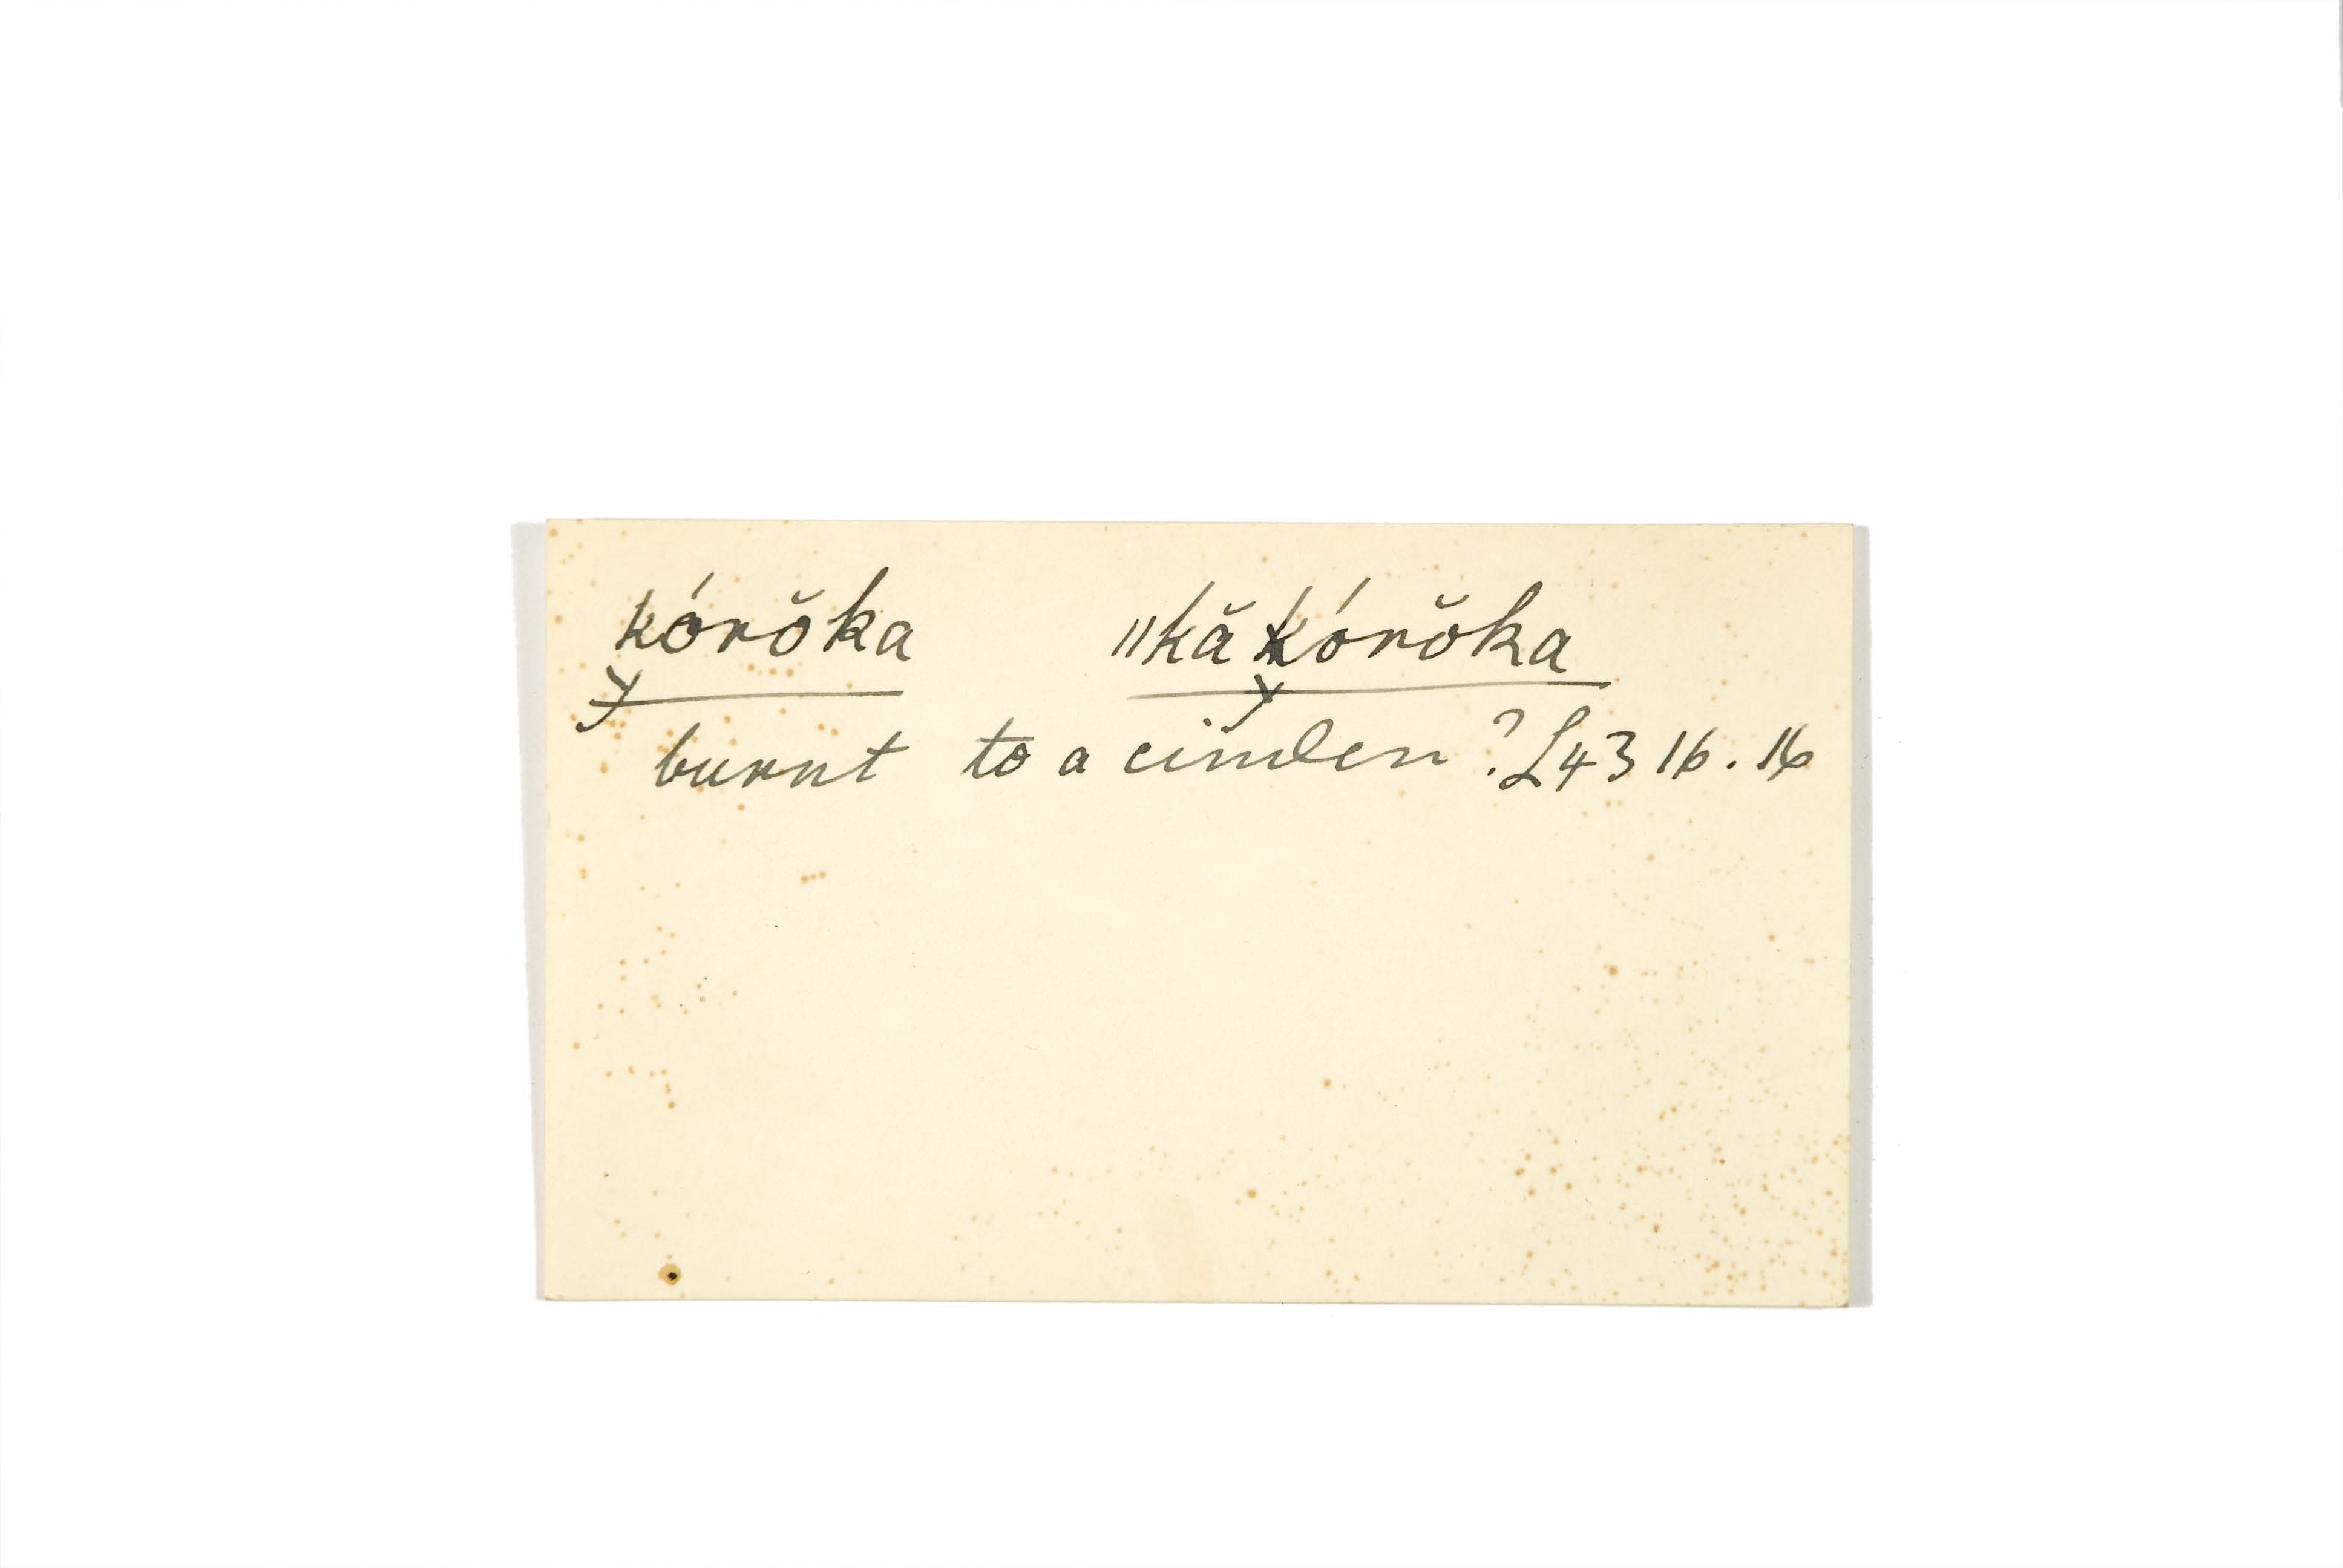 kórŏka ǁkă kórŏka
burnt to a cinder? L43 16. 16